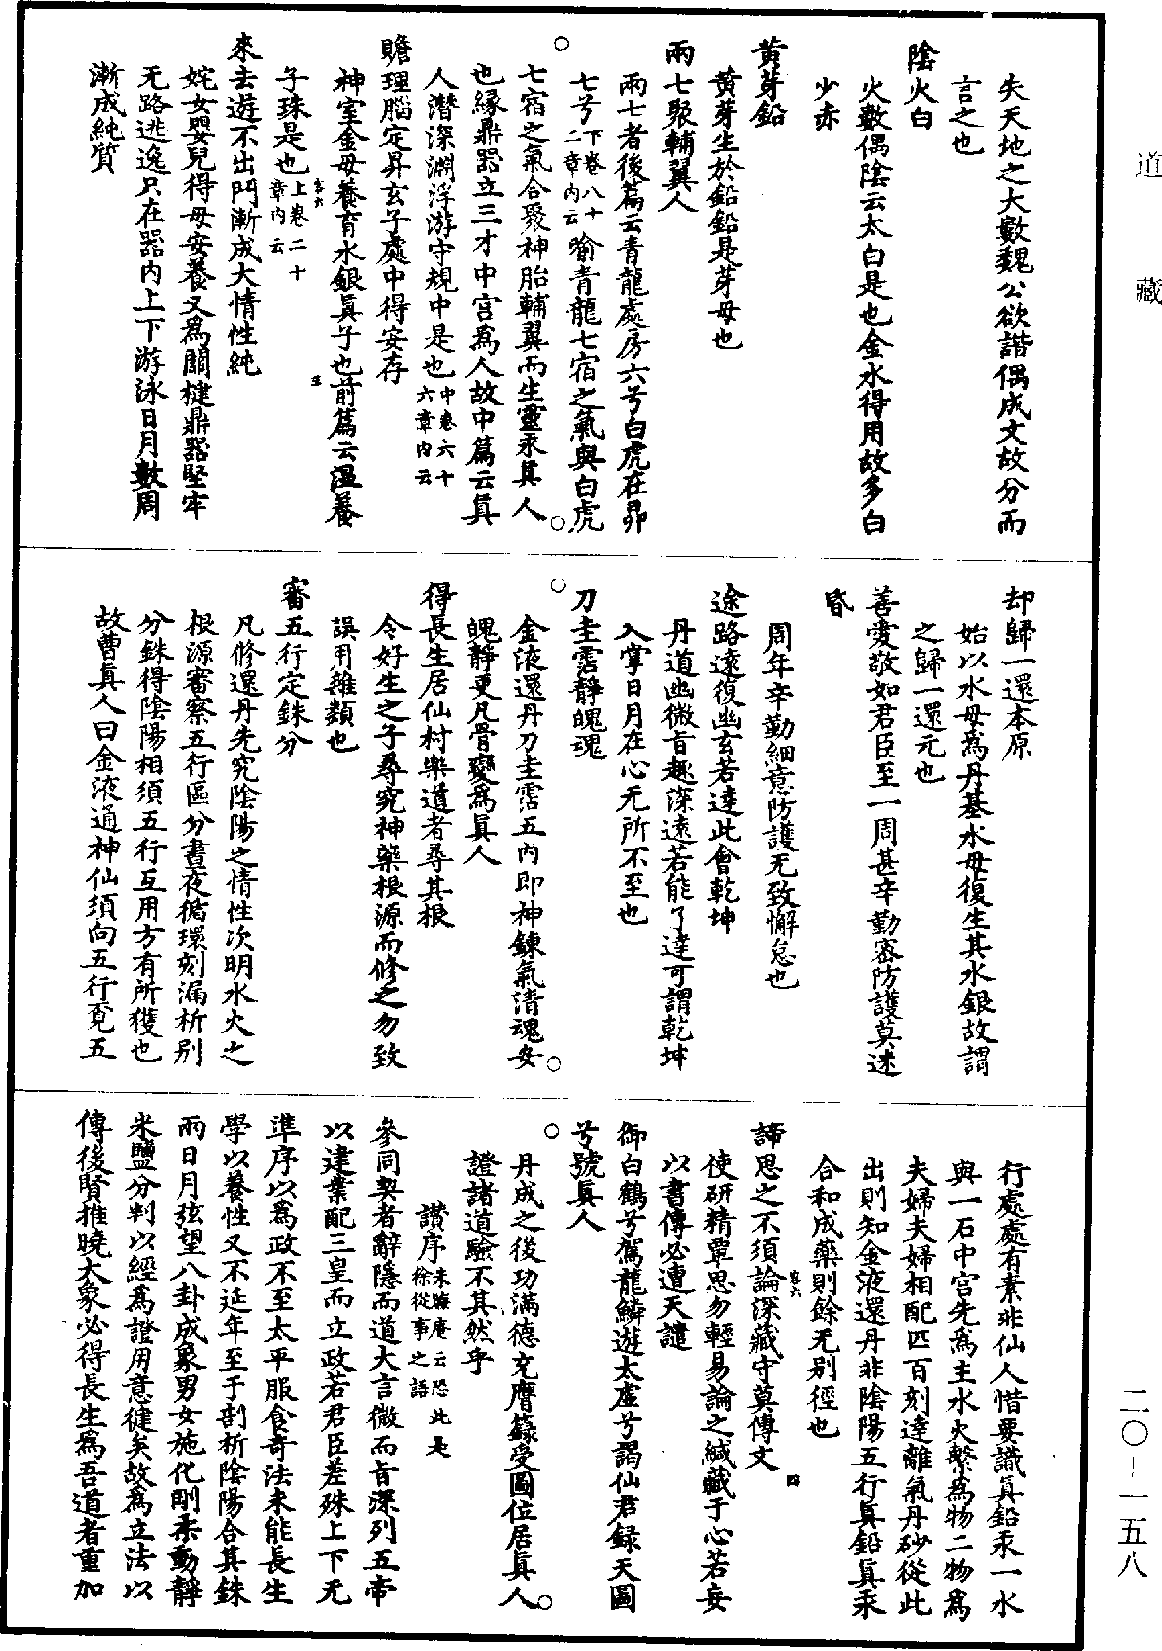 道藏
失天地之大數魏公欲諧偶成文故分而
言之也
陰火白
火數偶陰云太白是也金水得用故多白
少赤
黃芽鉛
黃芽生於鉛鉛是芽母也
兩七聚輔翼人
兩七者後篇云青龍處房六兮白虎在昴
七兮下卷八十二章內云喻青龍七宿之氣與白虎
七宿之氣合聚神胎輔翼而生靈汞真人
也緣鼎器立三才中宮為人故中篇云真
人潛深淵浮游守規中是也中卷六十六章內云
贍理腦定昇玄子處中得安存
神室金母養育水銀真子也前篇云溫養
子珠是也上卷二十章內云
來去遊不出門漸成大情性純
姹女嬰兒得母安養又為關楗鼎器堅牢
无路逃逸只在器內上下游泳日月數周
漸成純質
却歸一還本原
始以水母為丹基水母復生其水銀故謂
之歸一還元也
善愛敬如君臣至一周甚辛勤密防護莫迷
昏
周年辛勤細意防護无致懈怠也
途路遠復幽玄若達此會乾坤
丹道幽微旨趣深遠若能了達可謂乾坤
入掌日月在心无所不至也
刀圭霑靜魄魂
金液還丹刀圭霑五內即神鍊氣清魂安
魄靜更凡骨變為真人
得長生居仙村樂道者尋其根
令好生之子尋究神藥根源而修之勿致
誤用雜類也
審五行定銖分
凡修還丹先究陰陽之情性次明水火之
根源審察五行區分晝夜循環刻漏析別
分銖得陰陽相須五行互用方有所獲也
故曹真人曰金液通神仙須向五行覓五
行處處有素非仙人惜要識真鉛汞一水
與一石中宮先為主水火繫為物二物為
夫婦夫婦相配匹百刻達離氣丹砂從此
出則知金液還丹非陰陽五行真鉛真汞
合和成藥則餘无別徑也
諦思之不須論深藏守莫傳文
使研精覃思勿輕易論之緘藏于心若妄
以書傳必遭天譴
御白鶴兮駕龍鱗遊太虛兮謁仙君錄天圖
兮號真人
丹成之後功滿德充膺籙受圖位居真人
證諸道驗不其然乎
讚序朱晦庵云恐此是徐從事之語
參同契者辭隱而道大言微而旨深列五帝
以建業配三皇而立政若君臣差殊上下无
準序以為政不至太平服食奇法未能長生
學以養性又不延年至于剖析陰陽合其銖
兩日月弦望八卦成象男女施化剛柔動靜
米鹽分判以經為證用意健矣故為立法以
傳後賢推曉大象必得長生為吾道者重加
二〇-一五八